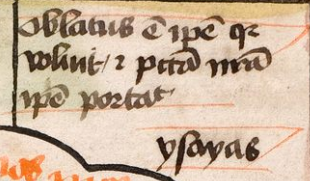 Oblatus ē ip̄e qꝛ
voluit / ⁊ pctā nrā
ip̄e portat
ysayas